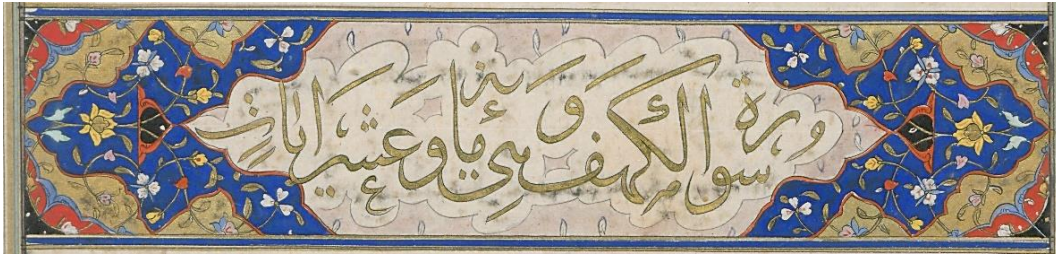 سورة الكهف وهي مائة وعشر ايات